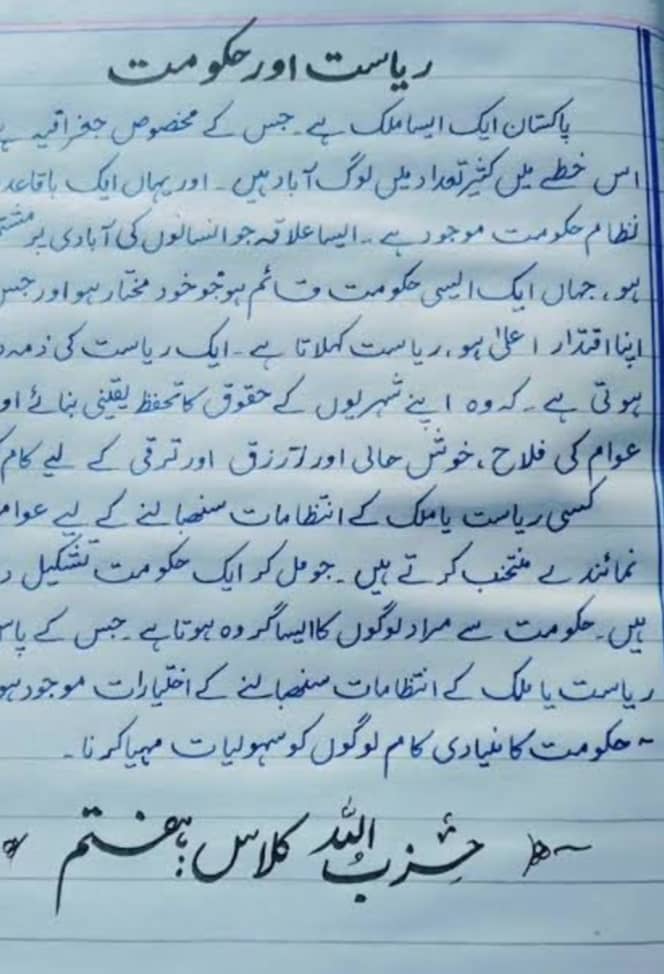 ریاست اور حکومت
پاکستان ایک ایسا ملک ہے۔ جس کے مخصوص جغرافیہ
اس خطے میں کثیر تعداد میں لوگ آباد ہیں۔ اور یہاں ایک باقاعدہ
نظام حکومت موجود ہے۔ ایسا علاقہ جو انسانوں کی آبادی پر
ہو، جہاں ایک ایسی حکومت قائم ہو جو خود مختار ہو اور جس
اپنا اقتدار اعلیٰ ہو، ریاست کہلاتا ہے۔ ایک ریاست کی
ہوتی ہے۔ کہ وہ اپنے شہریوں کے حقوق کا تحفظ یقینی بنائے
عوام کی فلاح، خوش حالی اور رزق اور ترقی کے لیے کام
کسی ریاست یا ملک کے انتظامات سنبھالنے کے لیے عوام
نمائندے منتخب کرتے ہیں۔ جو مل کر ایک حکومت تشکیل
ہیں۔ حکومت سے مراد لوگوں کا ایسا گروہ ہوتا ہے۔ جس کے پاس
ریاست یا ملک کے انتظامات سنبھالنے کے اختیارات موجود
۔ حکومت کا بنیادی کام لوگوں کو سہولیات مہیا کرنا۔
حزب اللہ کلاس: ہفتم